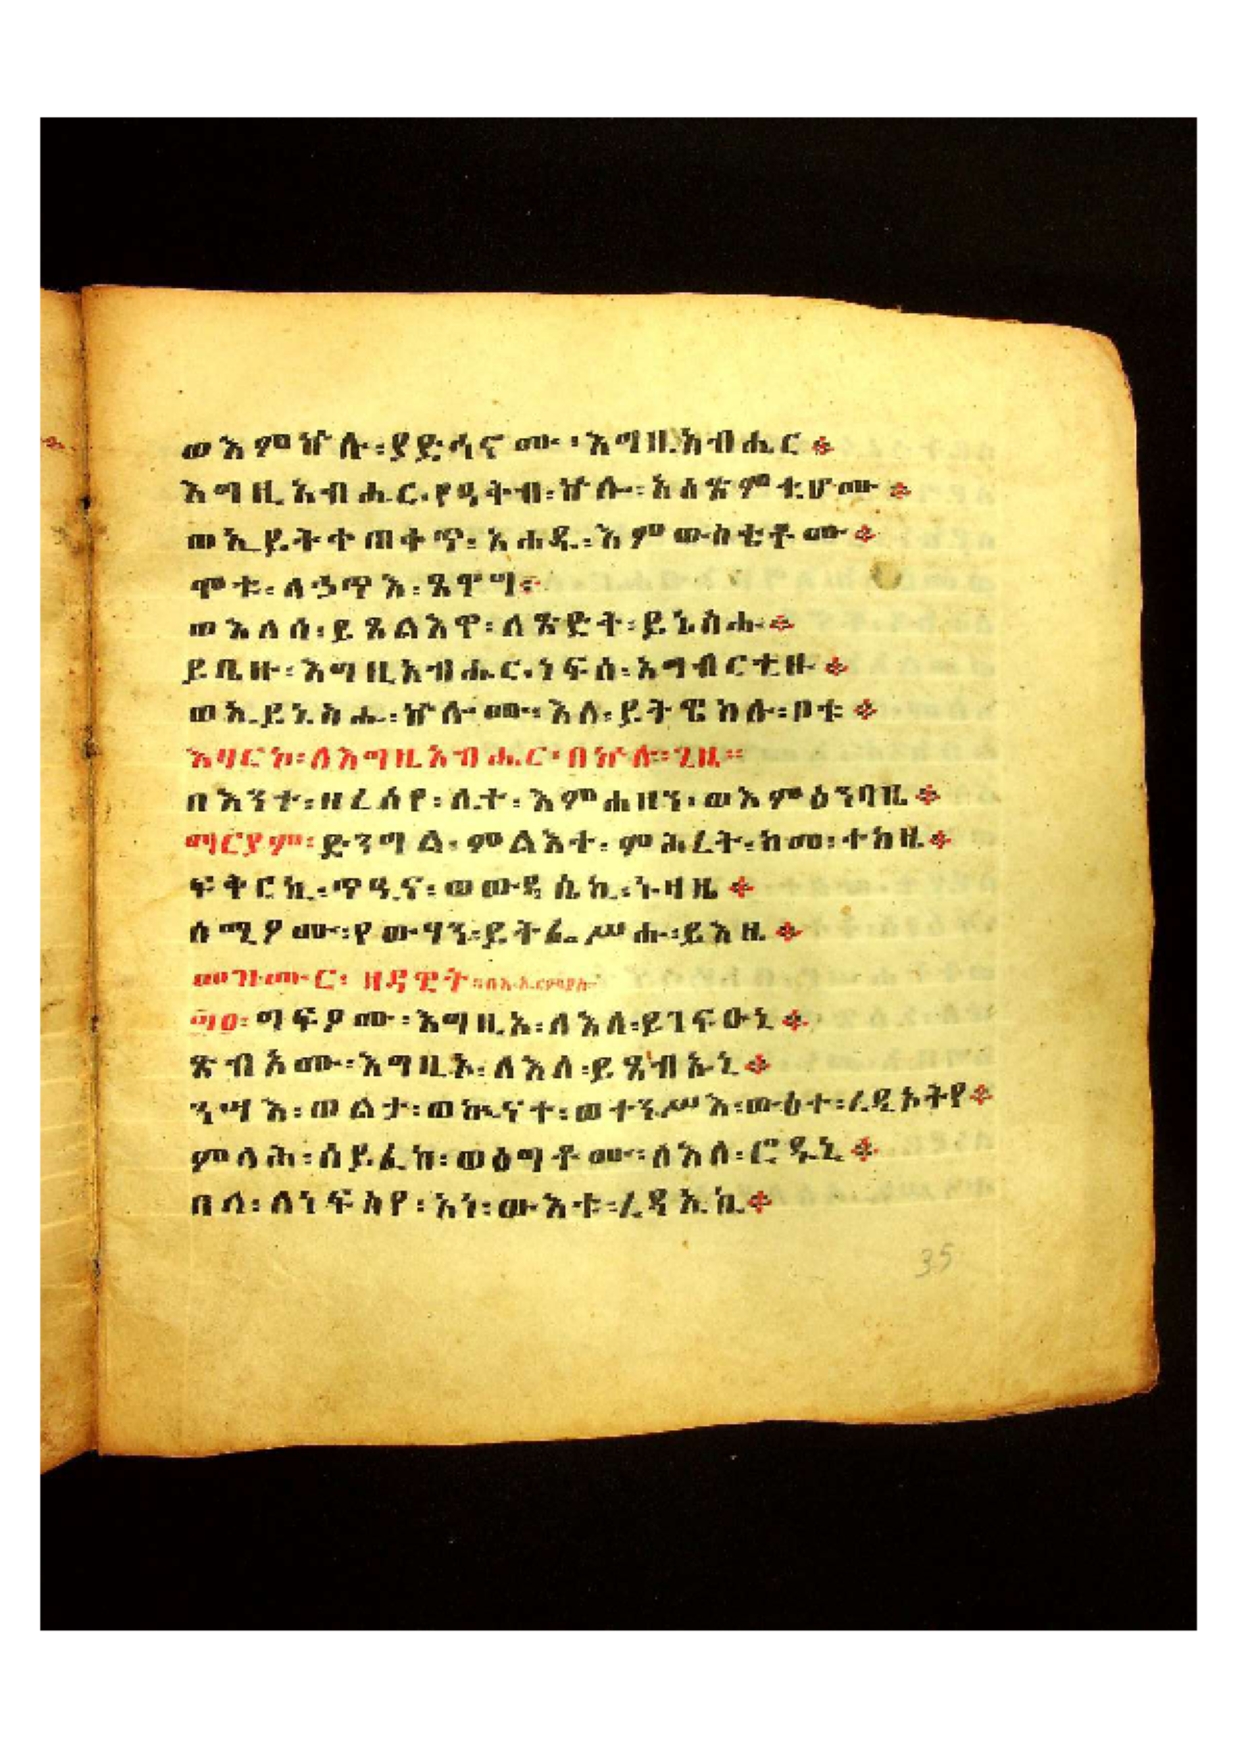 ወእምኵሉ፡ያድኅኖሙ፡እግዚአብሔር፨
እግዚአብሔር፡የዓቅብ፡ኵሎ፡አዕፅምቲሆሙ፨
ወኢይትቀጠቀጥ፡አሐዱ፡እምውስቴቶሙ፨
ሞቱ፡ለኃጥእ፡ጸዋግ፨
ወእለሰ፡ይጸልእዋ፡ለጽድቅ፡ይኔስሑ፨
ይቤዙ፡እግዚአብሔር፡ነፍሰ፡አግብርቲሁ፨
ወኢይኔስሑ፡ኵሎሙ፡እለ፡ይትዌከሉ፡ቦቱ፨
እባርኮ፡ለእግዚአብሔር፡በኵሉ፡ጊዜ፨
በእንተ፡ዘረሰየ፡ሊተ፡እምሐዘን፡ወእምዕንባዜ፨
ማርያም፡ድንግል፡ምልእተ፡ምሕረት፡ከመ፡ተከዚ፨
ፍቅርኪ፡ጥዒና፡ወውዳሴኪ፡ኑዛዜ፨
ሰሚዖሙ፡የውሃን፡ይትፌሥሑ፡ይእዜ፨
መዝሙር፡ ዘዳዊት፡በእ
፴፬፡ግፍዖሙ፡እግዚኦ፡ለእለ፡ይገፍዑኒ፨
ጽብኦሙ፡እግዚኦ፡ለእለ፡ይጸብኡኒ፨
ንሣእ፡ወልታ፡ወኲናተ፡ወተንሥእ፡ውስተ፡ረዲኦትየ፨
ምላሕ፡ሰይፈከ፡ወዕግቶሙ፡ለእለ፡ሮዱኒ፨
በላ፡ለነፍስየ፡አነ፡ውእቱ፡ረዳኢኪ፨
35